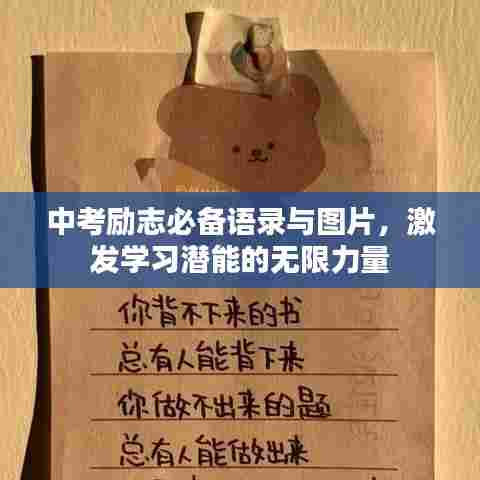 中考励志必备语录与图片，激
发学习潜能的无限力量
你背不下来的书
总有人能背下来
你做不出来的题
总有人能做出来